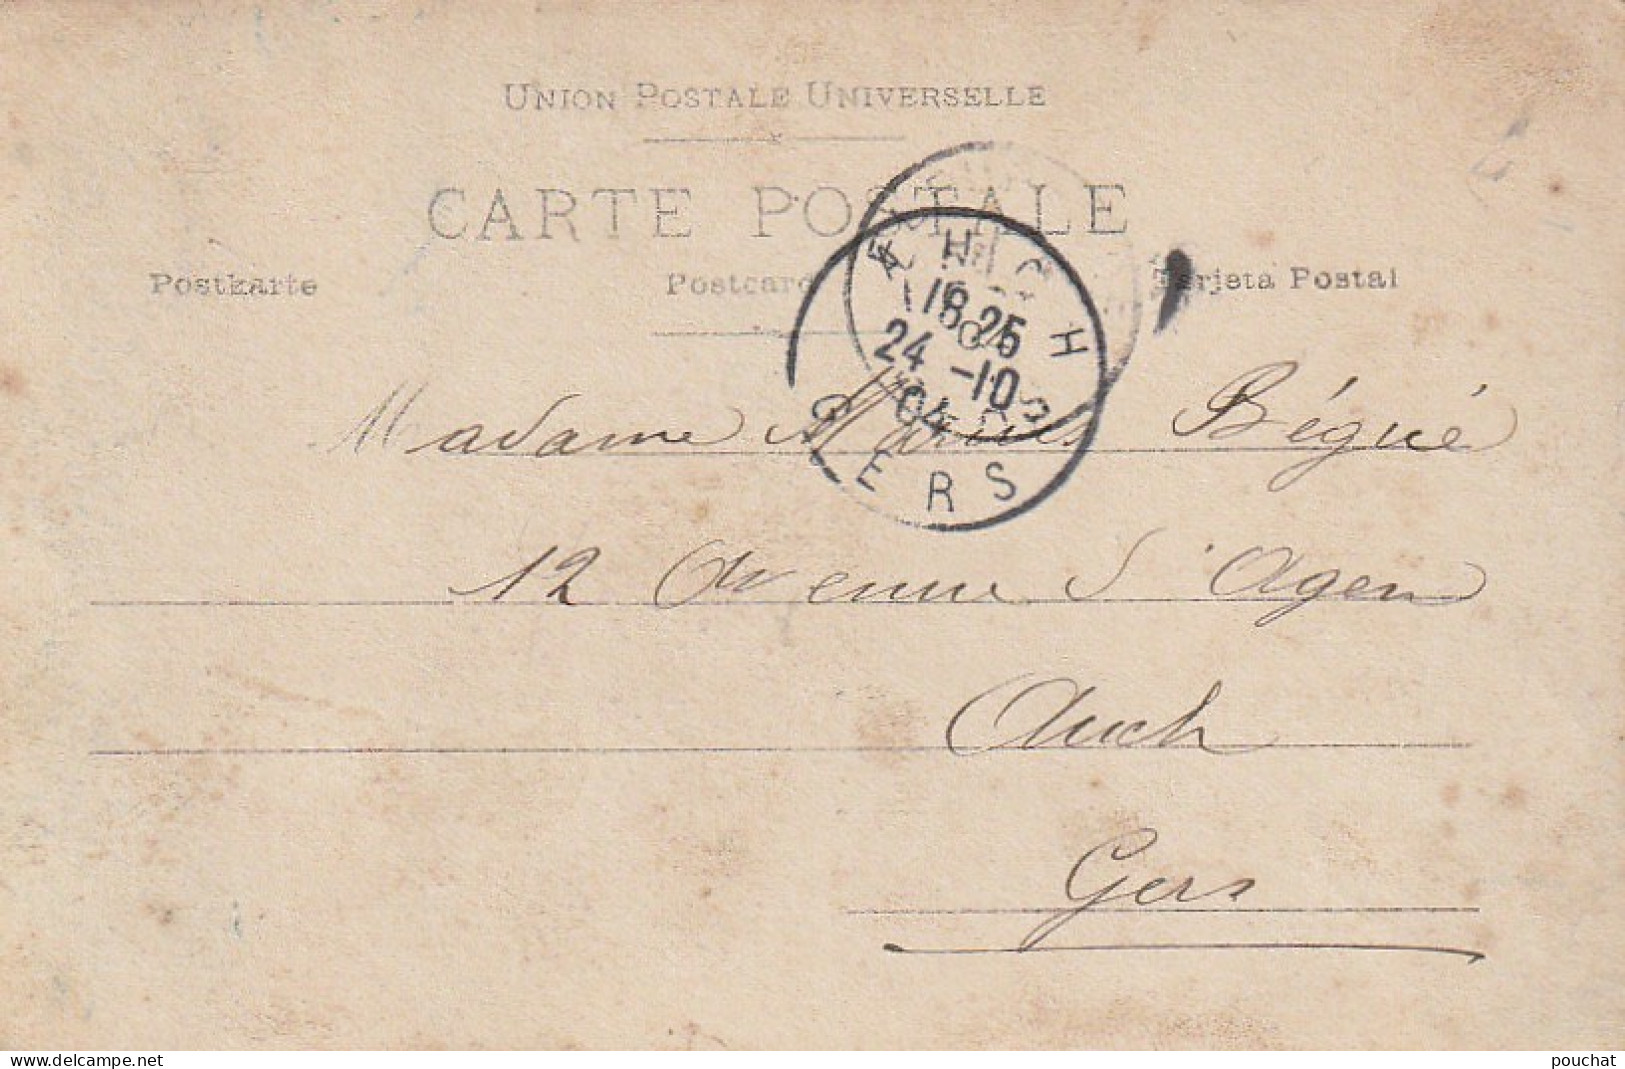 UNION POSTALE UNIVERSELLE
CARTE POSTALE
Postkarte Postcard Tarjeta Postal
AUCH
18 25
24 -10
04
GERS
Madame Marius Bégué
12 Avenue d'Agen
Auch
Gers
delcampe.net
pouchat